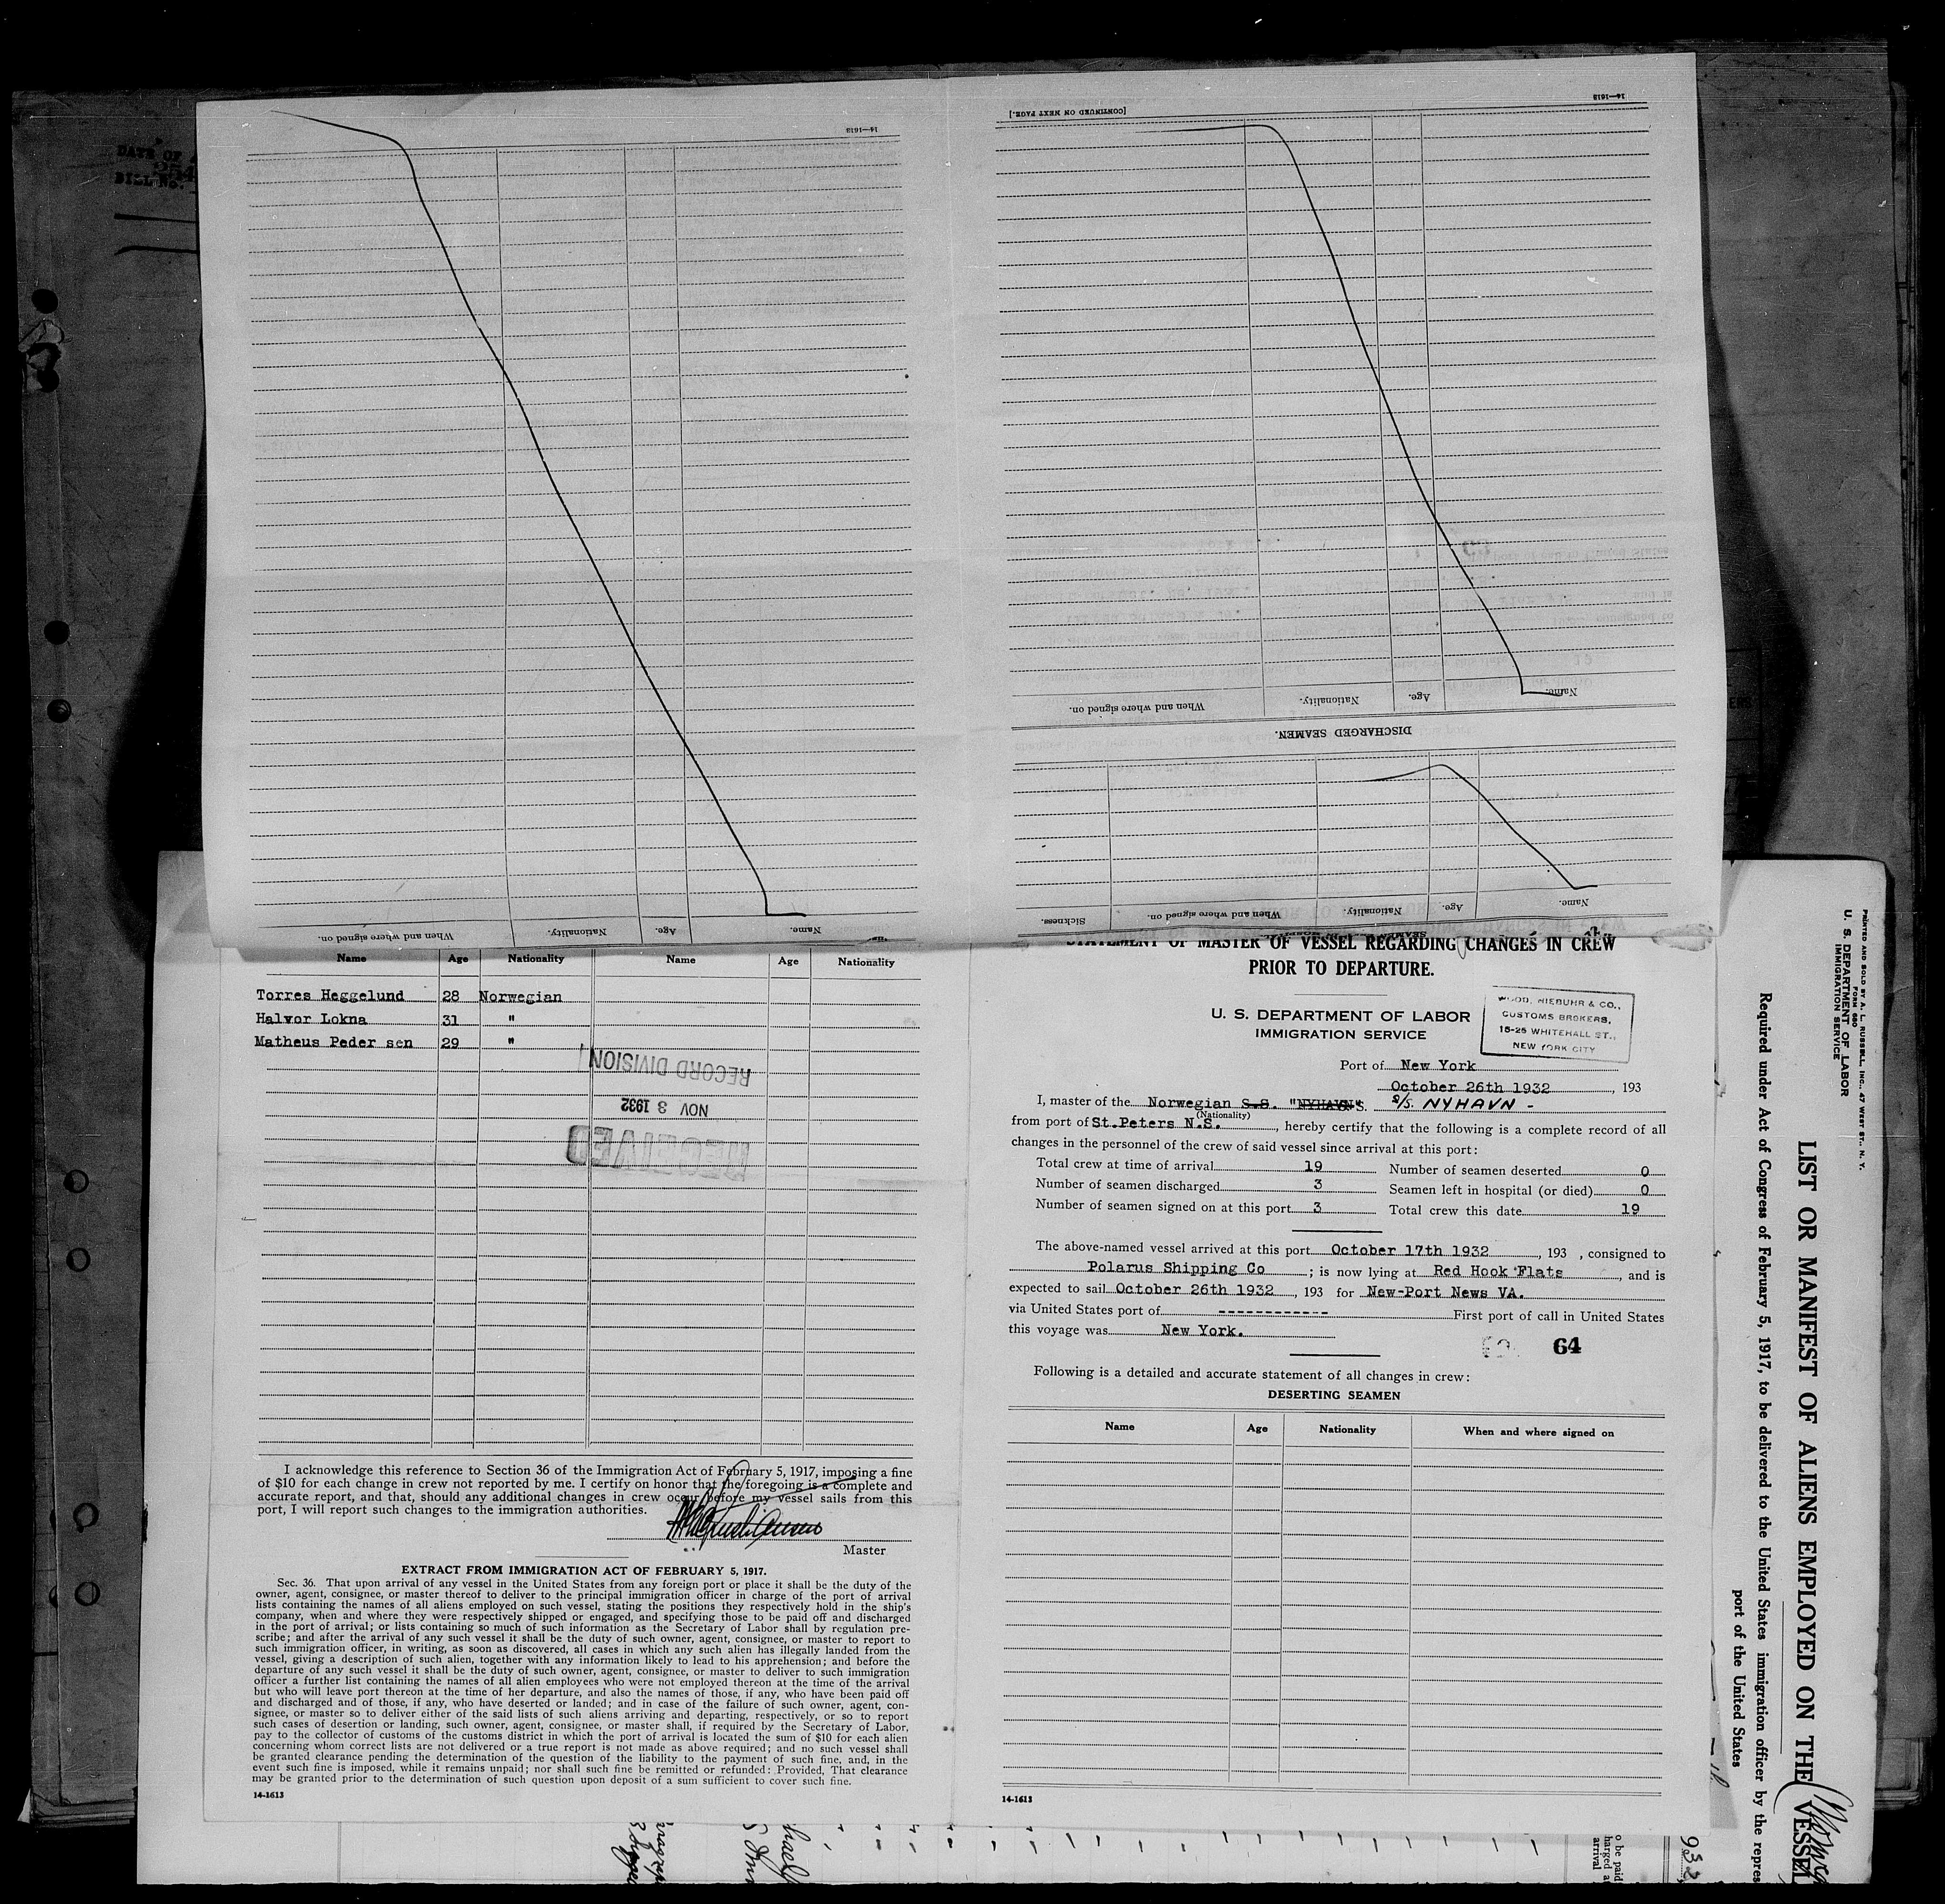 DATE OF
BILL NO.
14—1613
When and where signed on.
Nationality.
Age.
Name.
[CONTINUED ON NEXT PAGE.]
14—1613
When and where signed on.
Nationality.
Age.
Name.
DISCHARGED SEAMEN.
Sickness.
When and where signed on.
Nationality.
Age.
Name.
Name Age Nationality Name Age Nationality
Torres Heggelund 28 Norwegian
Halvor Lokna 31 "
Matheus Peder sen 29 "
RECORD DIVISION
NOV 3 1932
RECEIVED
I acknowledge this reference to Section 36 of the Immigration Act of February 5, 1917, imposing a fine
of $10 for each change in crew not reported by me. I certify on honor that the foregoing is a complete and
accurate report, and that, should any additional changes in crew occur before my vessel sails from this
port, I will report such changes to the immigration authorities.
Master
EXTRACT FROM IMMIGRATION ACT OF FEBRUARY 5, 1917.
Sec. 36. That upon arrival of any vessel in the United States from any foreign port or place it shall be the duty of the
owner, agent, consignee, or master thereof to deliver to the principal immigration officer in charge of the port of arrival
lists containing the names of all aliens employed on such vessel, stating the positions they respectively hold in the ship's
company, when and where they were respectively shipped or engaged, and specifying those to be paid off and discharged
in the port of arrival; or lists containing so much of such information as the Secretary of Labor shall by regulation pre-
scribe; and after the arrival of any such vessel it shall be the duty of such owner, agent, consignee, or master to report to
such immigration officer, in writing, as soon as discovered, all cases in which any such alien has illegally landed from the
vessel, giving a description of such alien, together with any information likely to lead to his apprehension; and before the
departure of any such vessel it shall be the duty of such owner, agent, consignee, or master to deliver to such immigration
officer a further list containing the names of all alien employees who were not employed thereon at the time of the arrival
but who will leave port thereon at the time of her departure, and also the names of those, if any, who have been paid off
and discharged and of those, if any, who have deserted or landed; and in case of the failure of such owner, agent, con-
signee, or master so to deliver either of the said lists of such aliens arriving and departing, respectively, or so to report
such cases of desertion or landing, such owner, agent, consignee, or master shall, if required by the Secretary of Labor,
pay to the collector of customs of the customs district in which the port of arrival is located the sum of $10 for each alien
concerning whom correct lists are not delivered or a true report is not made as above required; and no such vessel shall
be granted clearance pending the determination of the question of the liability to the payment of such fine, and, in the
event such fine is imposed, while it remains unpaid; nor shall such fine be remitted or refunded: Provided, That clearance
may be granted prior to the determination of such question upon deposit of a sum sufficient to cover such fine.
14-1613
STATEMENT OF MASTER OF VESSEL REGARDING CHANGES IN CREW
PRIOR TO DEPARTURE.
U. S. DEPARTMENT OF LABOR
IMMIGRATION SERVICE
WOOD, NIEBUHR & CO.,
CUSTOMS BROKERS,
15-25 WHITEHALL ST.,
NEW YORK CITY
Port of New York
October 26th 1932, 193
I, master of the Norwegian S.S. "NYHAVN" S. S/S. NYHAVN -
(Nationality)
from port of St.Peters N.S., hereby certify that the following is a complete record of all
changes in the personnel of the crew of said vessel since arrival at this port:
Total crew at time of arrival 19 Number of seamen deserted 0
Number of seamen discharged 3 Seamen left in hospital (or died) 0
Number of seamen signed on at this port 3 Total crew this date 19
The above-named vessel arrived at this port October 17th 1932, 193 , consigned to
Polarus Shipping Co ; is now lying at Red Hook Flats, and is
expected to sail October 26th 1932, 193 for New-Port News VA.
via United States port of ------------ First port of call in United States
this voyage was New York.
64
Following is a detailed and accurate statement of all changes in crew:
DESERTING SEAMEN
Name Age Nationality When and where signed on
14-1613
PRINTED AND SOLD BY A. L. RUSSELL, INC., 47 WEST ST., N. Y.
FORM 680
U. S. DEPARTMENT OF LABOR
IMMIGRATION SERVICE
LIST OR MANIFEST OF ALIENS EMPLOYED ON THE VESSEL
Required under Act of Congress of February 5, 1917, to be delivered to the United States immigration officer by the repres
port of the United States
o be paid
harged at
arrival
932